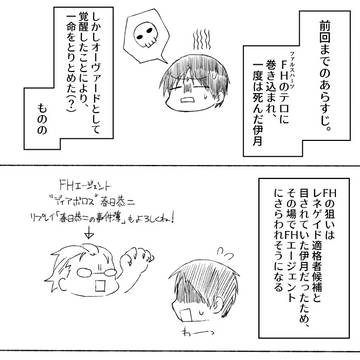 前回までのあらすじ。
FHのテロに
ファルスハーツ
巻き込まれ、
一度は死んだ伊月
しかしオーヴァードとして
覚醒したことにより、
一命をとりとめた(?)
ものの
FHの狙いは
レネゲイド適格者候補と
目されていた伊月だったため、
その場でFHエージェント
にさらわれそうになる
FHエージェント
"ディアボロス"春日恭二
リプレイ「春日恭二の事件簿」もよろしくね!
わーっ